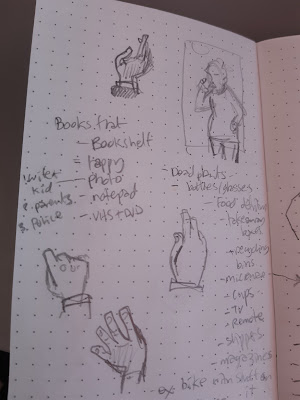 Books that
- Bookshelf
= Happy
photo
- notepad
- VHS + DVD
1. wife +
kid
2. parents
3. Police
- Dead plants
- bottles/glasses
Food
takeaway
boxes
+ recycling
bins
- microwave
- cups
- TV
- Remote
- slippers
- magazines
bike with stuff on
it